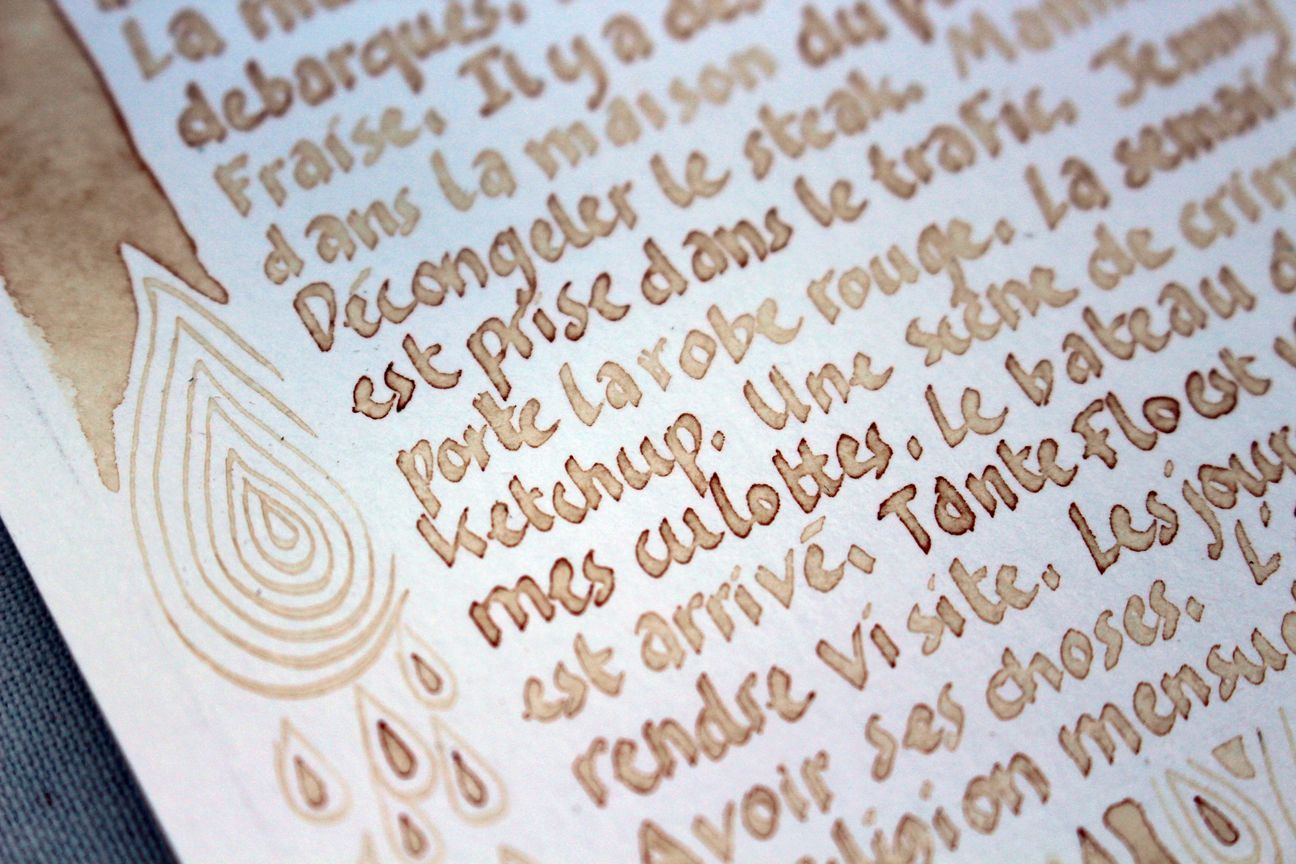 La
debarques.
Fraise. Il y a de
dans la maison du
Décongeler le steak.
est prise dans le trafic. Jemmy
porte la robe rouge. La semaine
Ketchup. Une scène de crim
mes culottes. Le bateau
est arrivé. Tante Flo est
rendre visite. Les jour
Avoir ses choses. L'
religion mensue